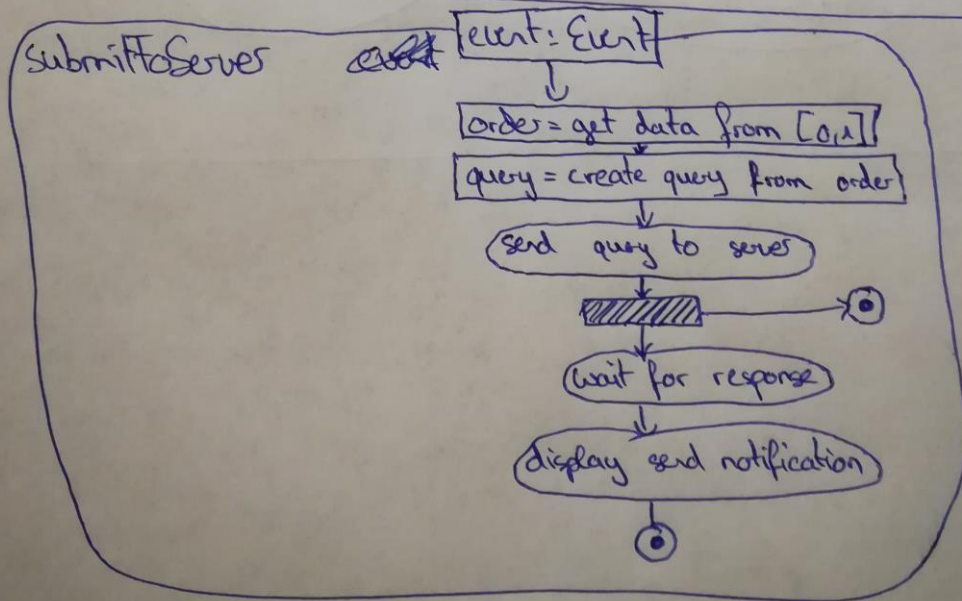 submitToServer event: Event
order = get data from [0,1]
query = create query from order
send query to server
wait for response
display send notification